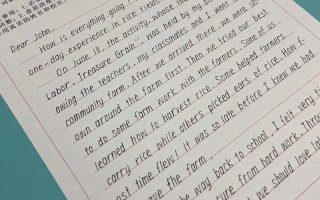 Dear John,
How is everything going
one-day experience in rice fields
On June 18, the activity, whose
Labor, Treasure Grain, was held by my
owing the teachers, my classmates and I went
community farm. After we arrived there, we were sh
own around the farm first. Then we tried our best
to do some farm work with the farmers. Some of us
learned how to harvest rice. Some helped farmers
carry rice while others picked ears of rice. How f
ast time flew! It was so late before I knew we had
ave the farm.
the way back to school, I felt very ti
sure from hard work. Throu
we should love la